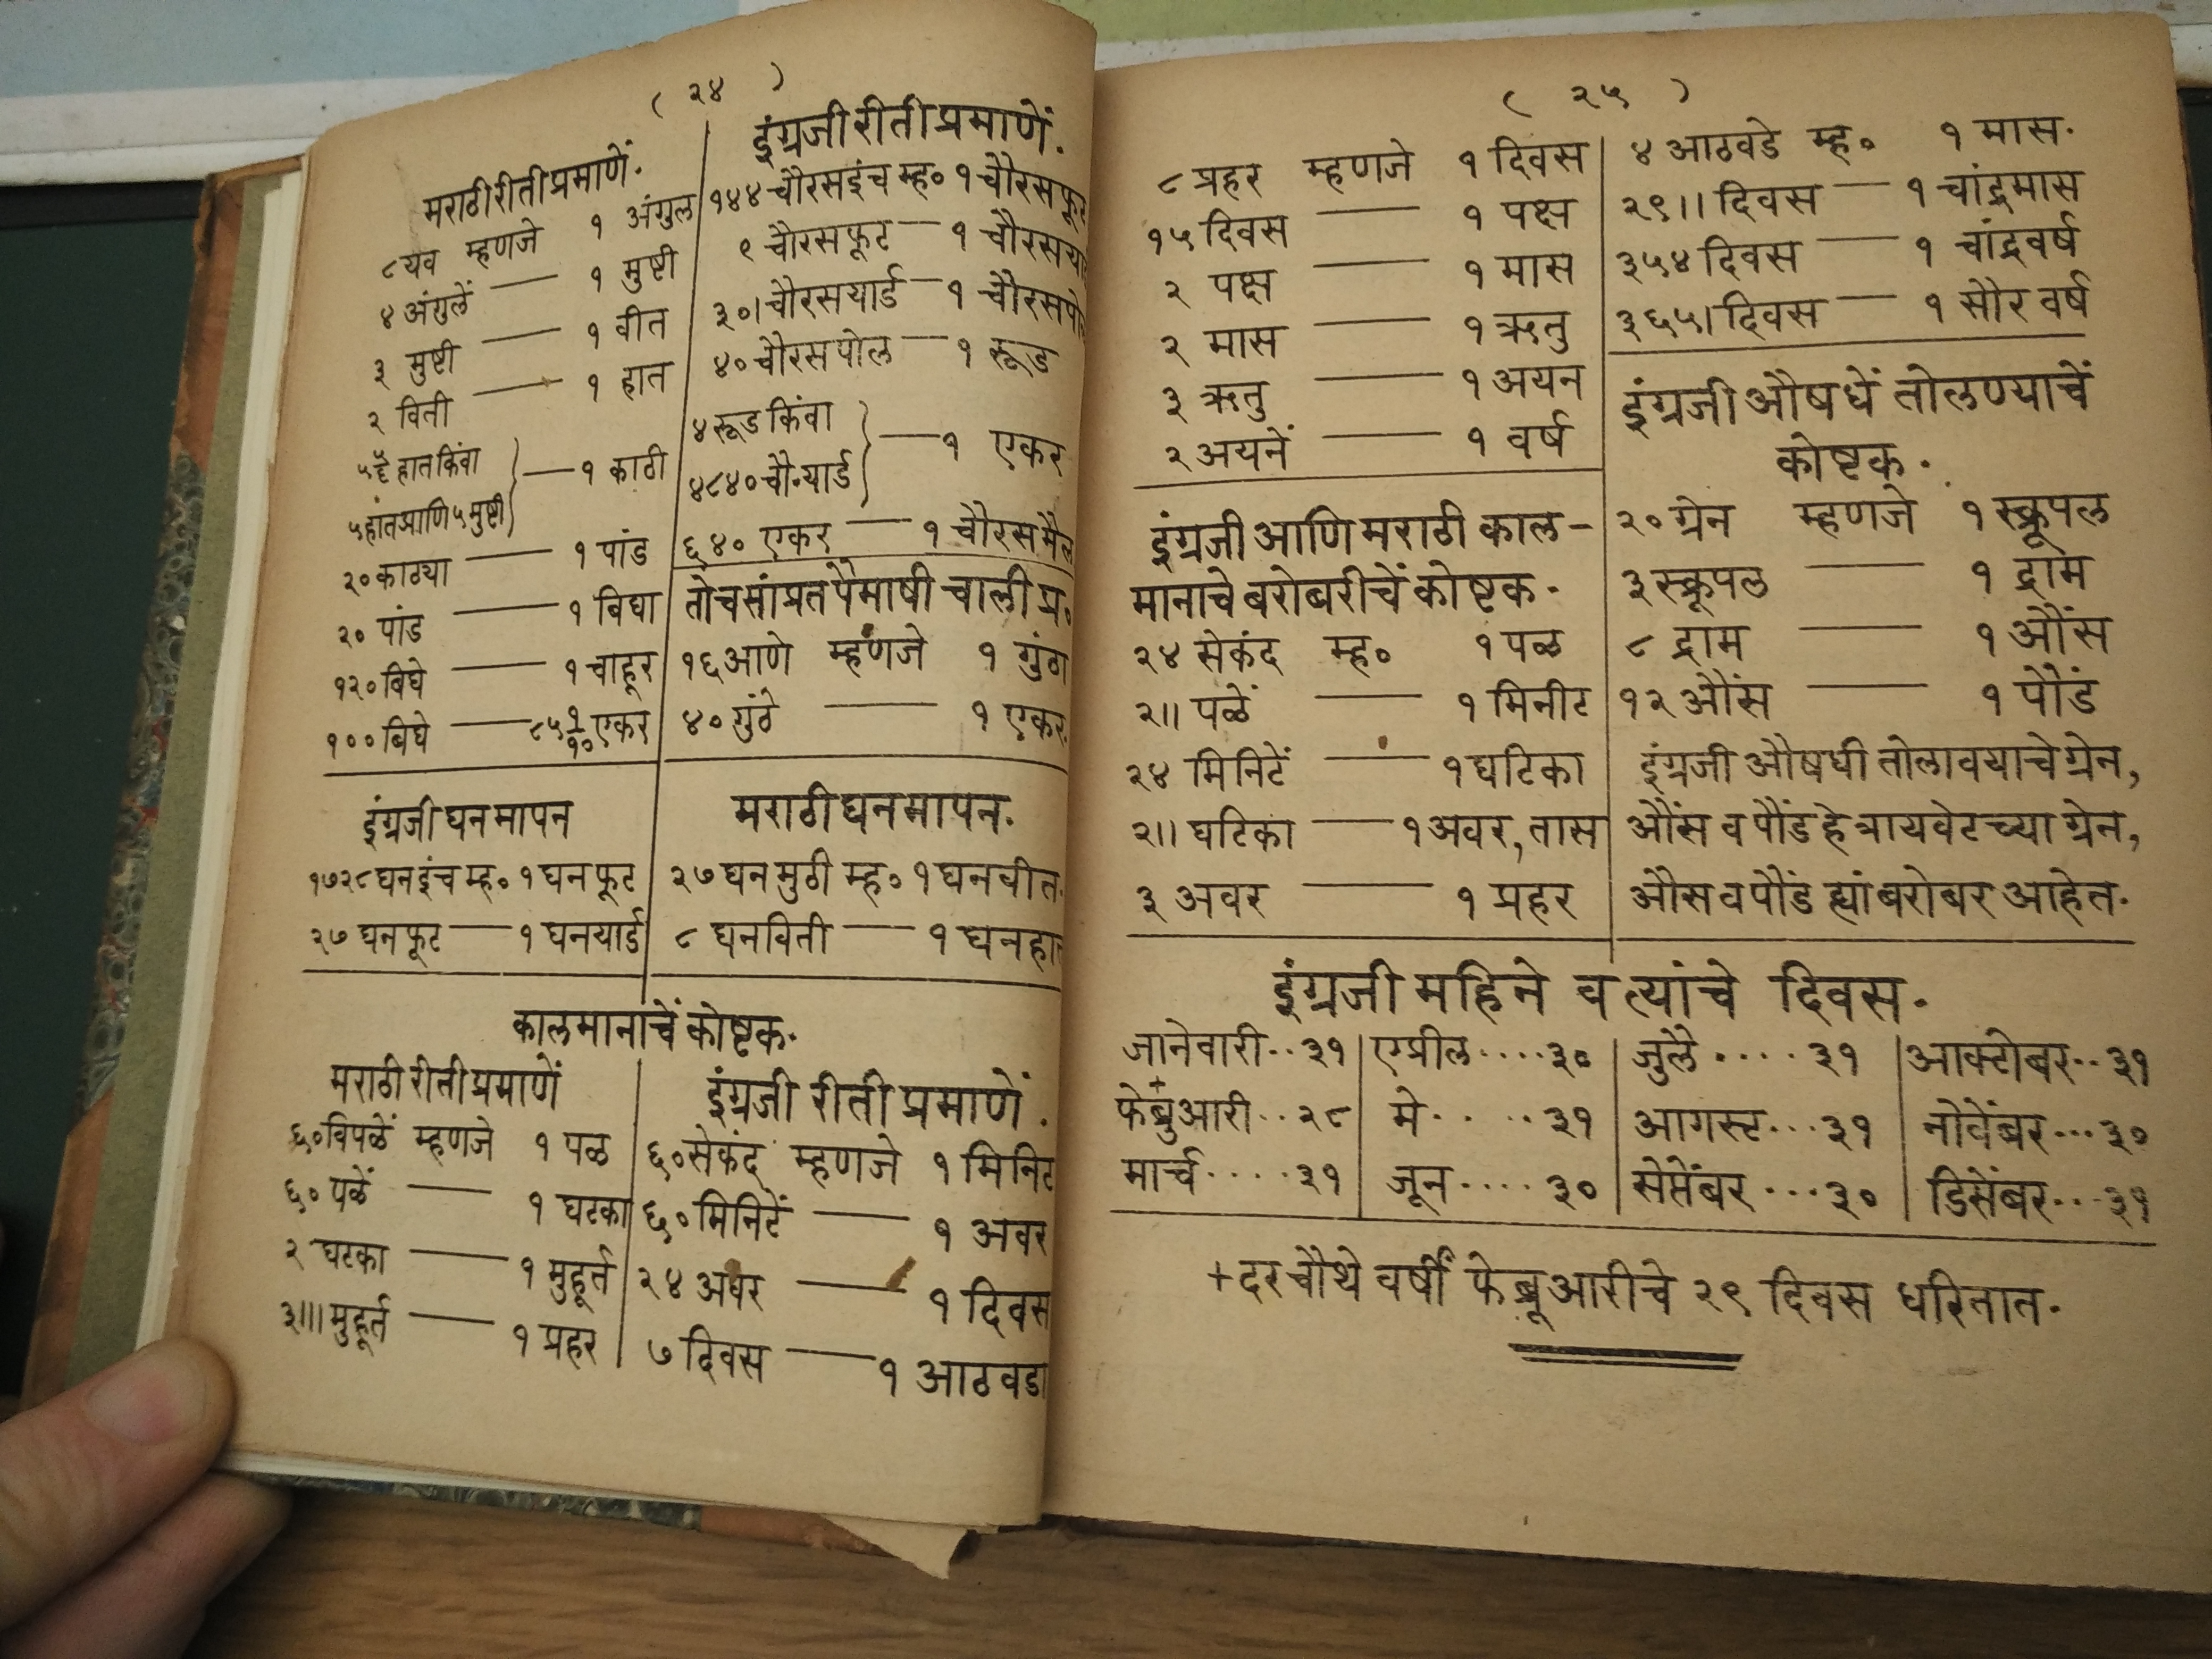 ( २४ )
मराठी रीती प्रमाणें.
८ यव म्हणजे १ अंगुल
४ अंगुलें — १ मुष्टी
३ मुष्टी — १ वीत
२ विती — १ हात
हात किंवा
५ हात आणि ५ मुष्टी — १ काठी
२० काठ्या — १ पांड
२० पांड — १ विघा
१२० विघे — १ चाहूर
१०० बिघे — ८५ १/१० एकर
इंग्रजी रीती प्रमाणें.
१४४ चौरस इंच म्ह० १ चौरस फूट
९ चौरस फूट — १ चौरस
३०। चौरस यार्ड — १ चौरस
४० चौरस पोल — १ रूड
४ रूड किंवा
४८४० चौ.यार्ड — १ एकर
६४० एकर — १ चौरस मैल
तोच सांप्रत पैमाषी चाली प्र०
१६ आणे म्हणजे १ गुंठा
४० गुंठे — १ एकर.
इंग्रजी घन मापन
१७२८ घन इंच म्ह० १ घन फूट
२७ घन फूट — १ घन यार्ड
मराठी घन मापन.
२७ घन मुठी म्ह० १ घन वीत.
८ घन विती — १ घन
काल मानाचें कोष्टक.
मराठी रीती प्रमाणें
६० विपळें म्हणजे १ पळ
६० पळें — १ घटका
२ घटका — १ मुहूर्त
३॥। मुहूर्त — १ प्रहर
इंग्रजी रीती प्रमाणें.
६० सेकंद म्हणजे १ मिनिट
६० मिनिटें — १ अवर
२४ अवर — १ दिवस
७ दिवस — १ आठवडा
( २५ )
८ प्रहर म्हणजे १ दिवस
१५ दिवस — १ पक्ष
२ पक्ष — १ मास
२ मास — १ ऋतु
३ ऋतु — १ अयन
२ अयनें — १ वर्ष
इंग्रजी आणि मराठी काल-
मानाचे बरोबरीचें कोष्टक.
२४ सेकंद म्ह० १ पळ
२॥ पळें — १ मिनीट
२४ मिनिटें — १ घटिका
२॥ घटिका — १ अवर, तास
३ अवर — १ प्रहर
४ आठवडे म्ह० १ मास.
२९॥ दिवस — १ चांद्रमास
३५४ दिवस — १ चांद्रवर्ष
३६५। दिवस — १ सौर वर्ष
इंग्रजी औषधें तोलण्याचें
कोष्टक.
२० ग्रेन म्हणजे १ स्क्रूपल
३ स्क्रूपल — १ द्राम
८ द्राम — १ औंस
१२ औंस — १ पौंड
इंग्रजी औषधी तोलावयाचे ग्रेन,
औंस व पौंड हे त्रायवेटच्या ग्रेन,
औंस व पौंड ह्यां बरोबर आहेत.
इंग्रजी महिने व त्यांचे दिवस.
जानेवारी..३१ एप्रील....३० जुलै....३१ आक्टोबर..३१
+फेब्रुआरी..२८ मे.....३१ आगस्ट...३१ नोवेंबर...३०
मार्च....३१ जून....३० सेप्तेंबर...३० डिसेंबर...३१
+दर चौथे वर्षीं फेब्रूआरीचे २९ दिवस धरितात.